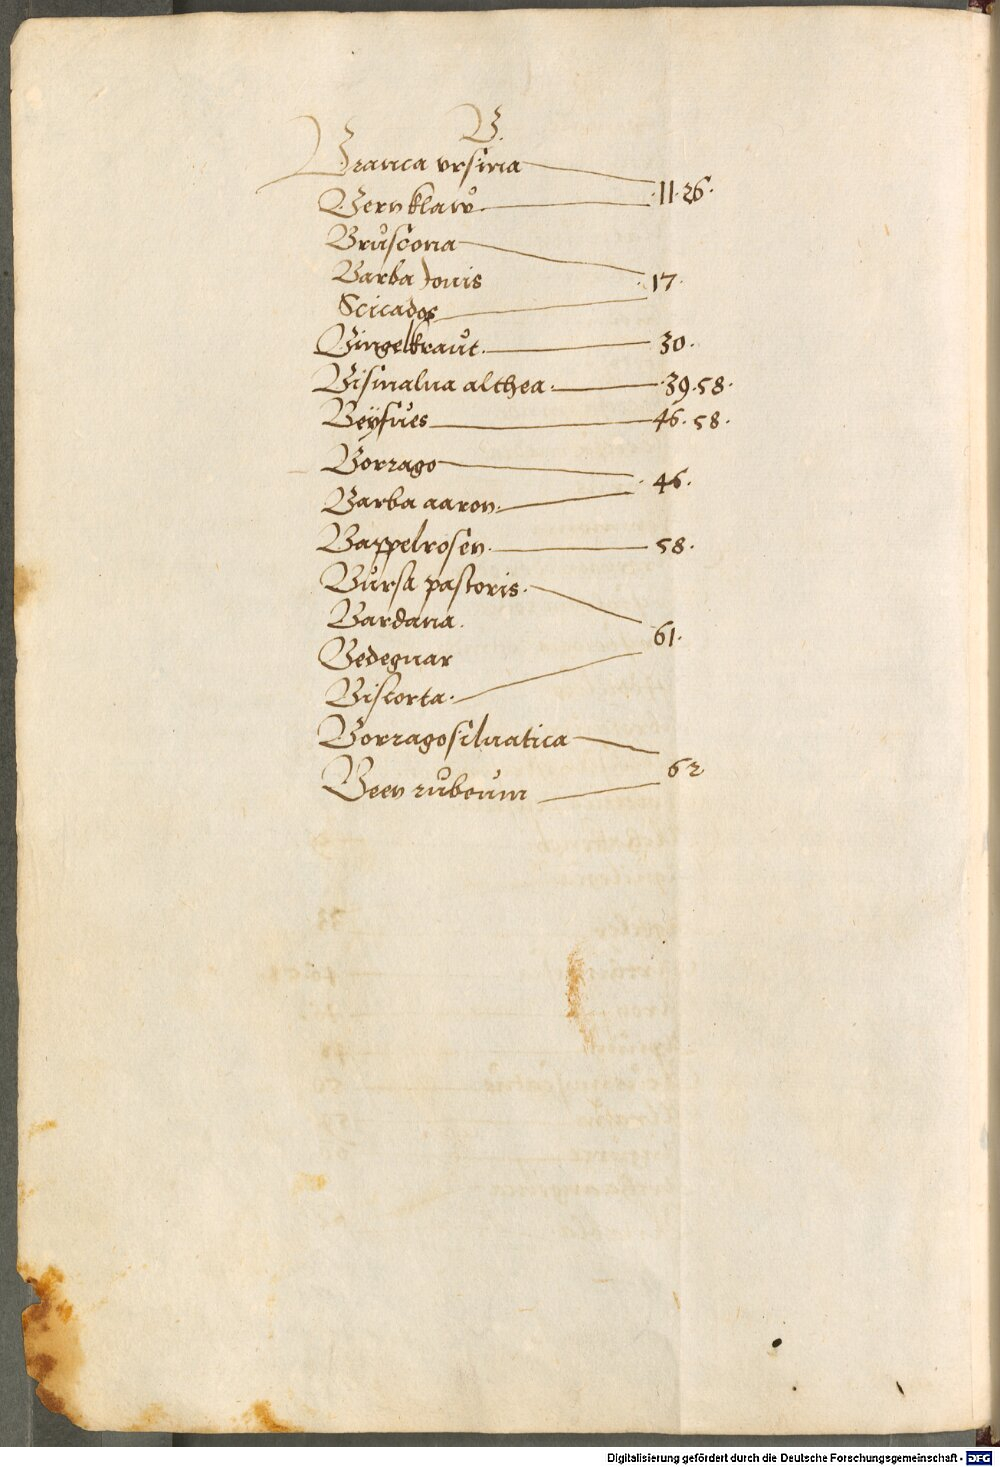 B.
Branca vrsina
Bernklaẘ. ·11·26·
Brůscona
Barba Jouis 17·
Scicados
Bingelkraůt. 30·
Bismalua althea· ·39·58·
Beÿfůes 46·58·
Borrago
Barba aaron· 46·
Bappelrosen· 58·
Bůrsa pastoris·
Bardana.
Bedeguar 61·
Bistorta·
Borragosiluatica
Been růbeům 62
Digitalisierung gefördert durch die Deutsche Forschungsgemeinschaft - DFG